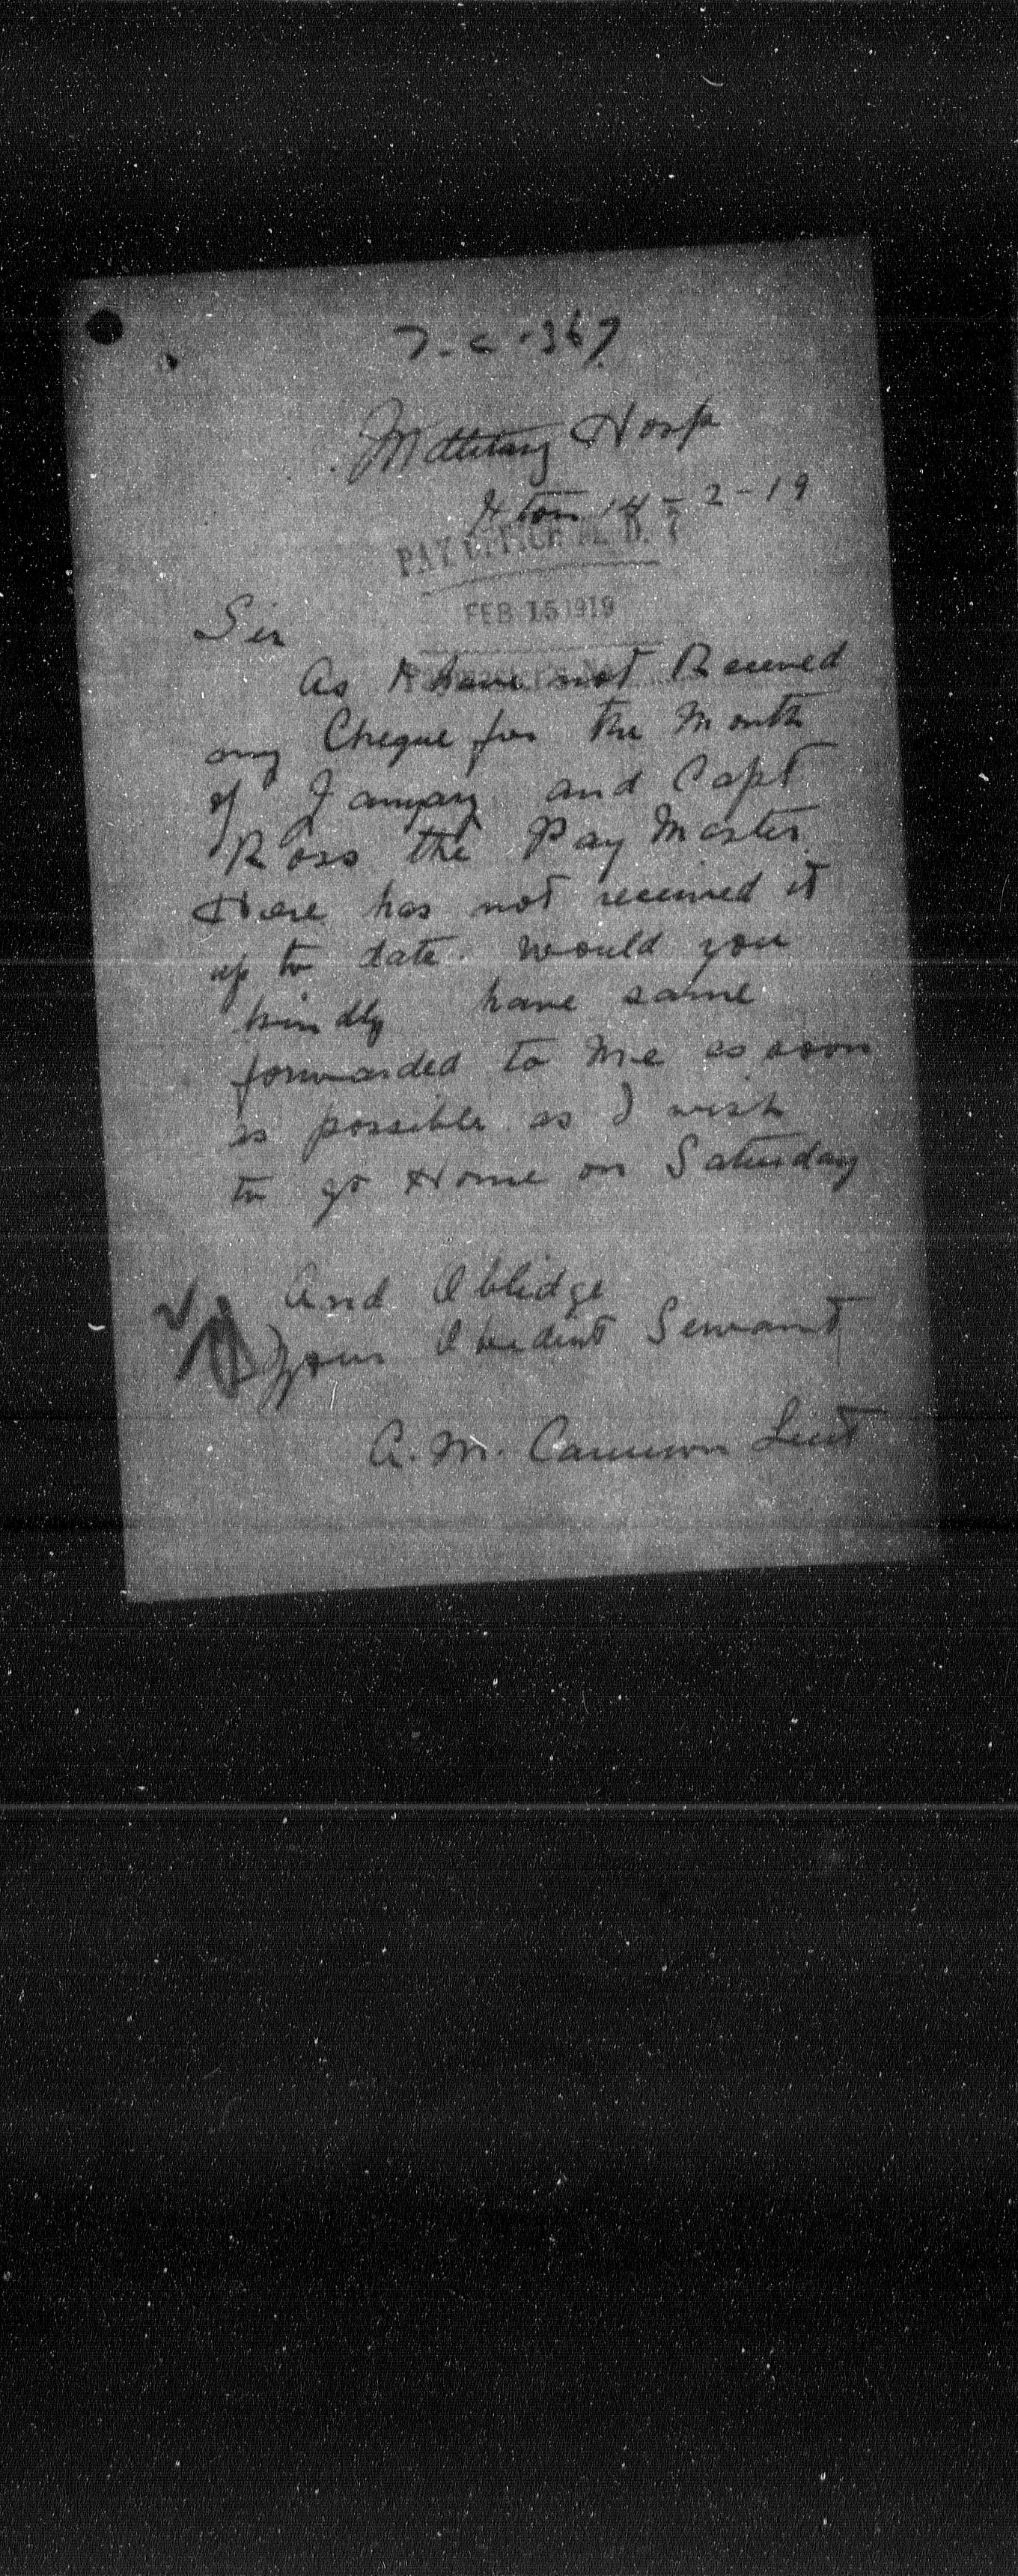 7-C-367
Military Hosp
F'ton 14-2-19
PAY OFFICE M. D. 7
FEB 15 1919
Sir
As I have not Received
any Cheque for the Month
of January and Capt
Ross the Pay Master
Here has not received it
up to date. would you
kindly have same
forwarded to Me as soon
as possible as I wish
to go Home on Saturday
And Oblidge
Your Obedient Servant
A. M. Cameron Lieut